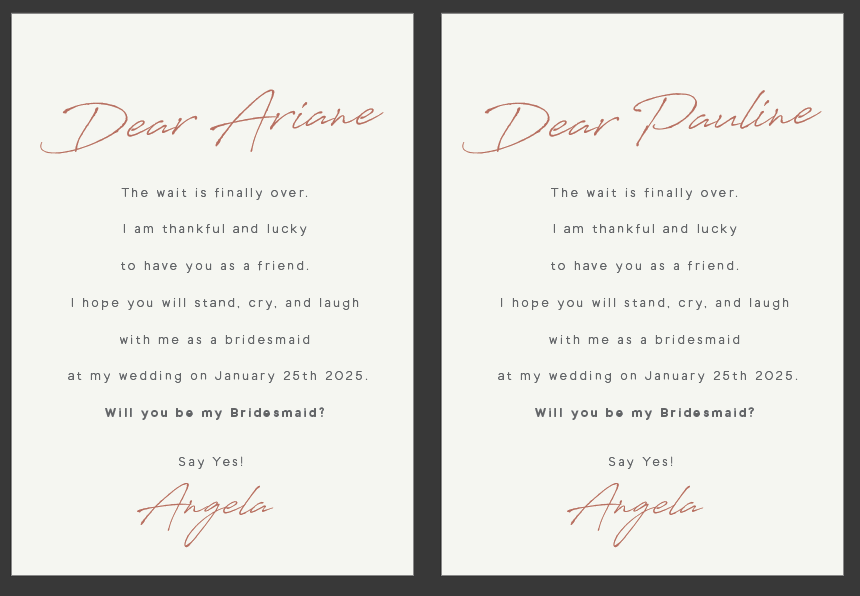 Dear Ariane
The wait is finally over.
I am thankful and lucky
to have you as a friend.
I hope you will stand, cry, and laugh
with me as a bridesmaid
at my wedding on January 25th 2025.
Will you be my Bridesmaid?
Say Yes!
Angela
Dear Pauline
The wait is finally over.
I am thankful and lucky
to have you as a friend.
I hope you will stand, cry, and laugh
with me as a bridesmaid
at my wedding on January 25th 2025.
Will you be my Bridesmaid?
Say Yes!
Angela